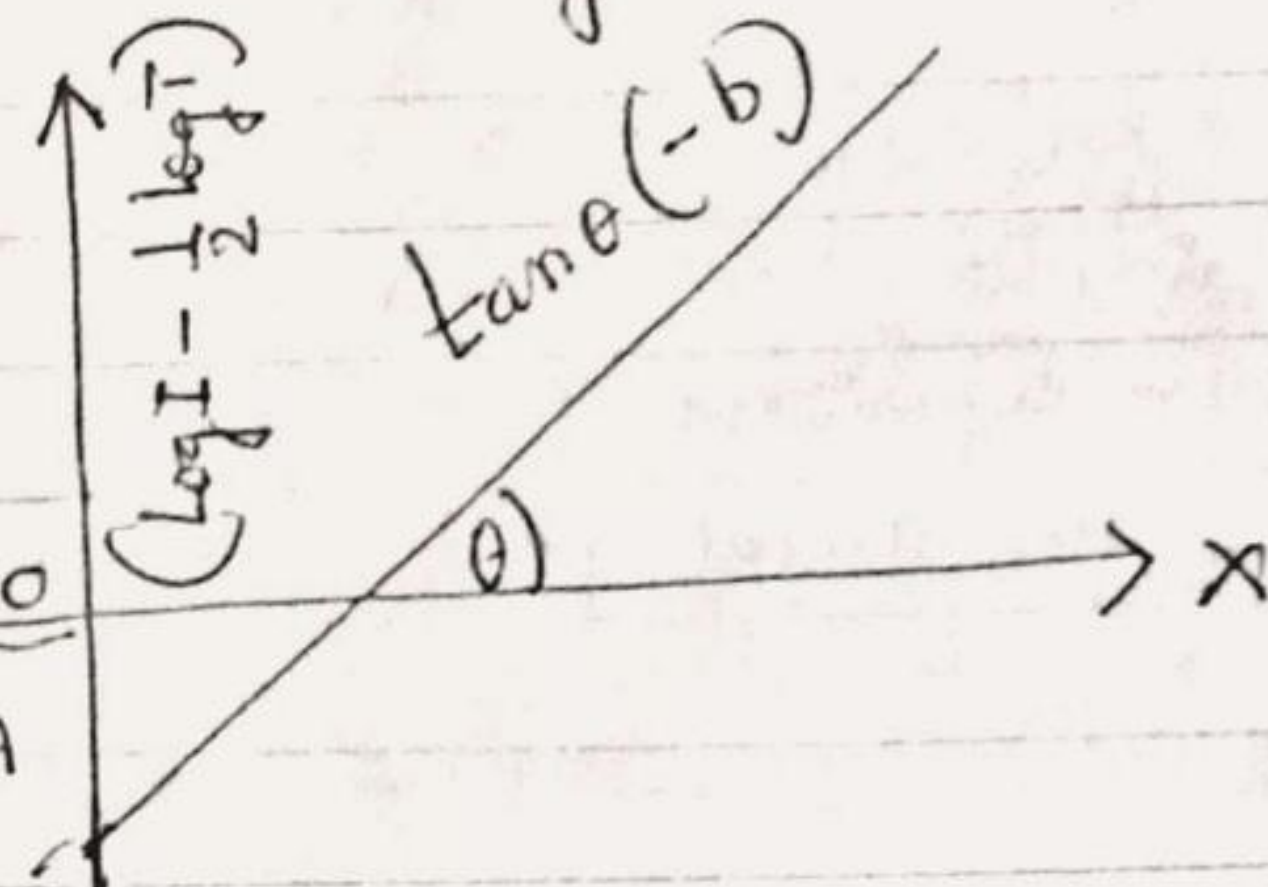 (Log I - 1/2 log T)
tan θ (-b)
θ
0
X